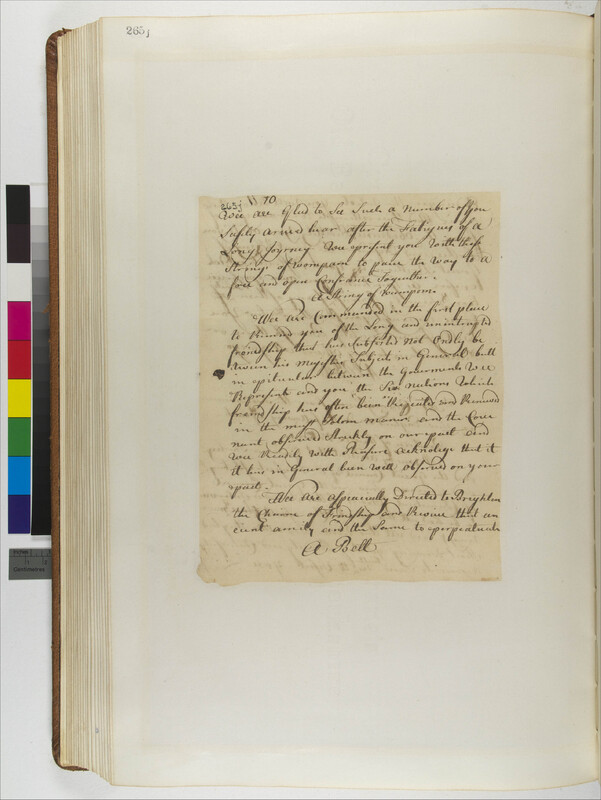 265j
265j
10
Wee are Glad to See Such a Number of you
Saifly arived hear after the Fatigues of a
Long Joyrney Wee present you With these
Strings of wompom to pave the Way to a
free and open Confrance Togeather.
A String of Wampom.
Wee are Commanded in the first place
to Remind you of the Long and unintrupted
friendship that has Subsisted Not Endly be
tween his Majesties Subjects in General butt
in perticular between the Goverments Wee
Represent and you the Six Nations Which
friendship has often been Repeated and Renewed
in the most Solom Manner and the Cove
nant observed Strickly on our part and
Wee Readily With Pleasure acknolege that it
it has in General been Well observed on your
part.
Wee are aspecially Directed to Brighten
the Cheane of Friendship and Renew that an
cient amity and the Same to perpetuate
A Belt
Centimetres